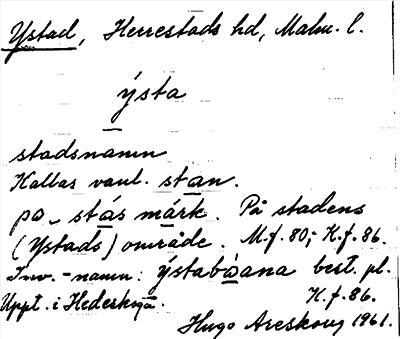 Ystad, Herrestads hd, Malm. l.
ýsta
stadsnamn
Kallas vanl. stan.
po stás márk. På stadens
(Ystads) område. M.f. 80; K.f. 86.
Inv.-namn: ýstaboana best. pl.
Uppt. i Hedeskoga. K.f. 86.
Hugo Areskoug 1961.